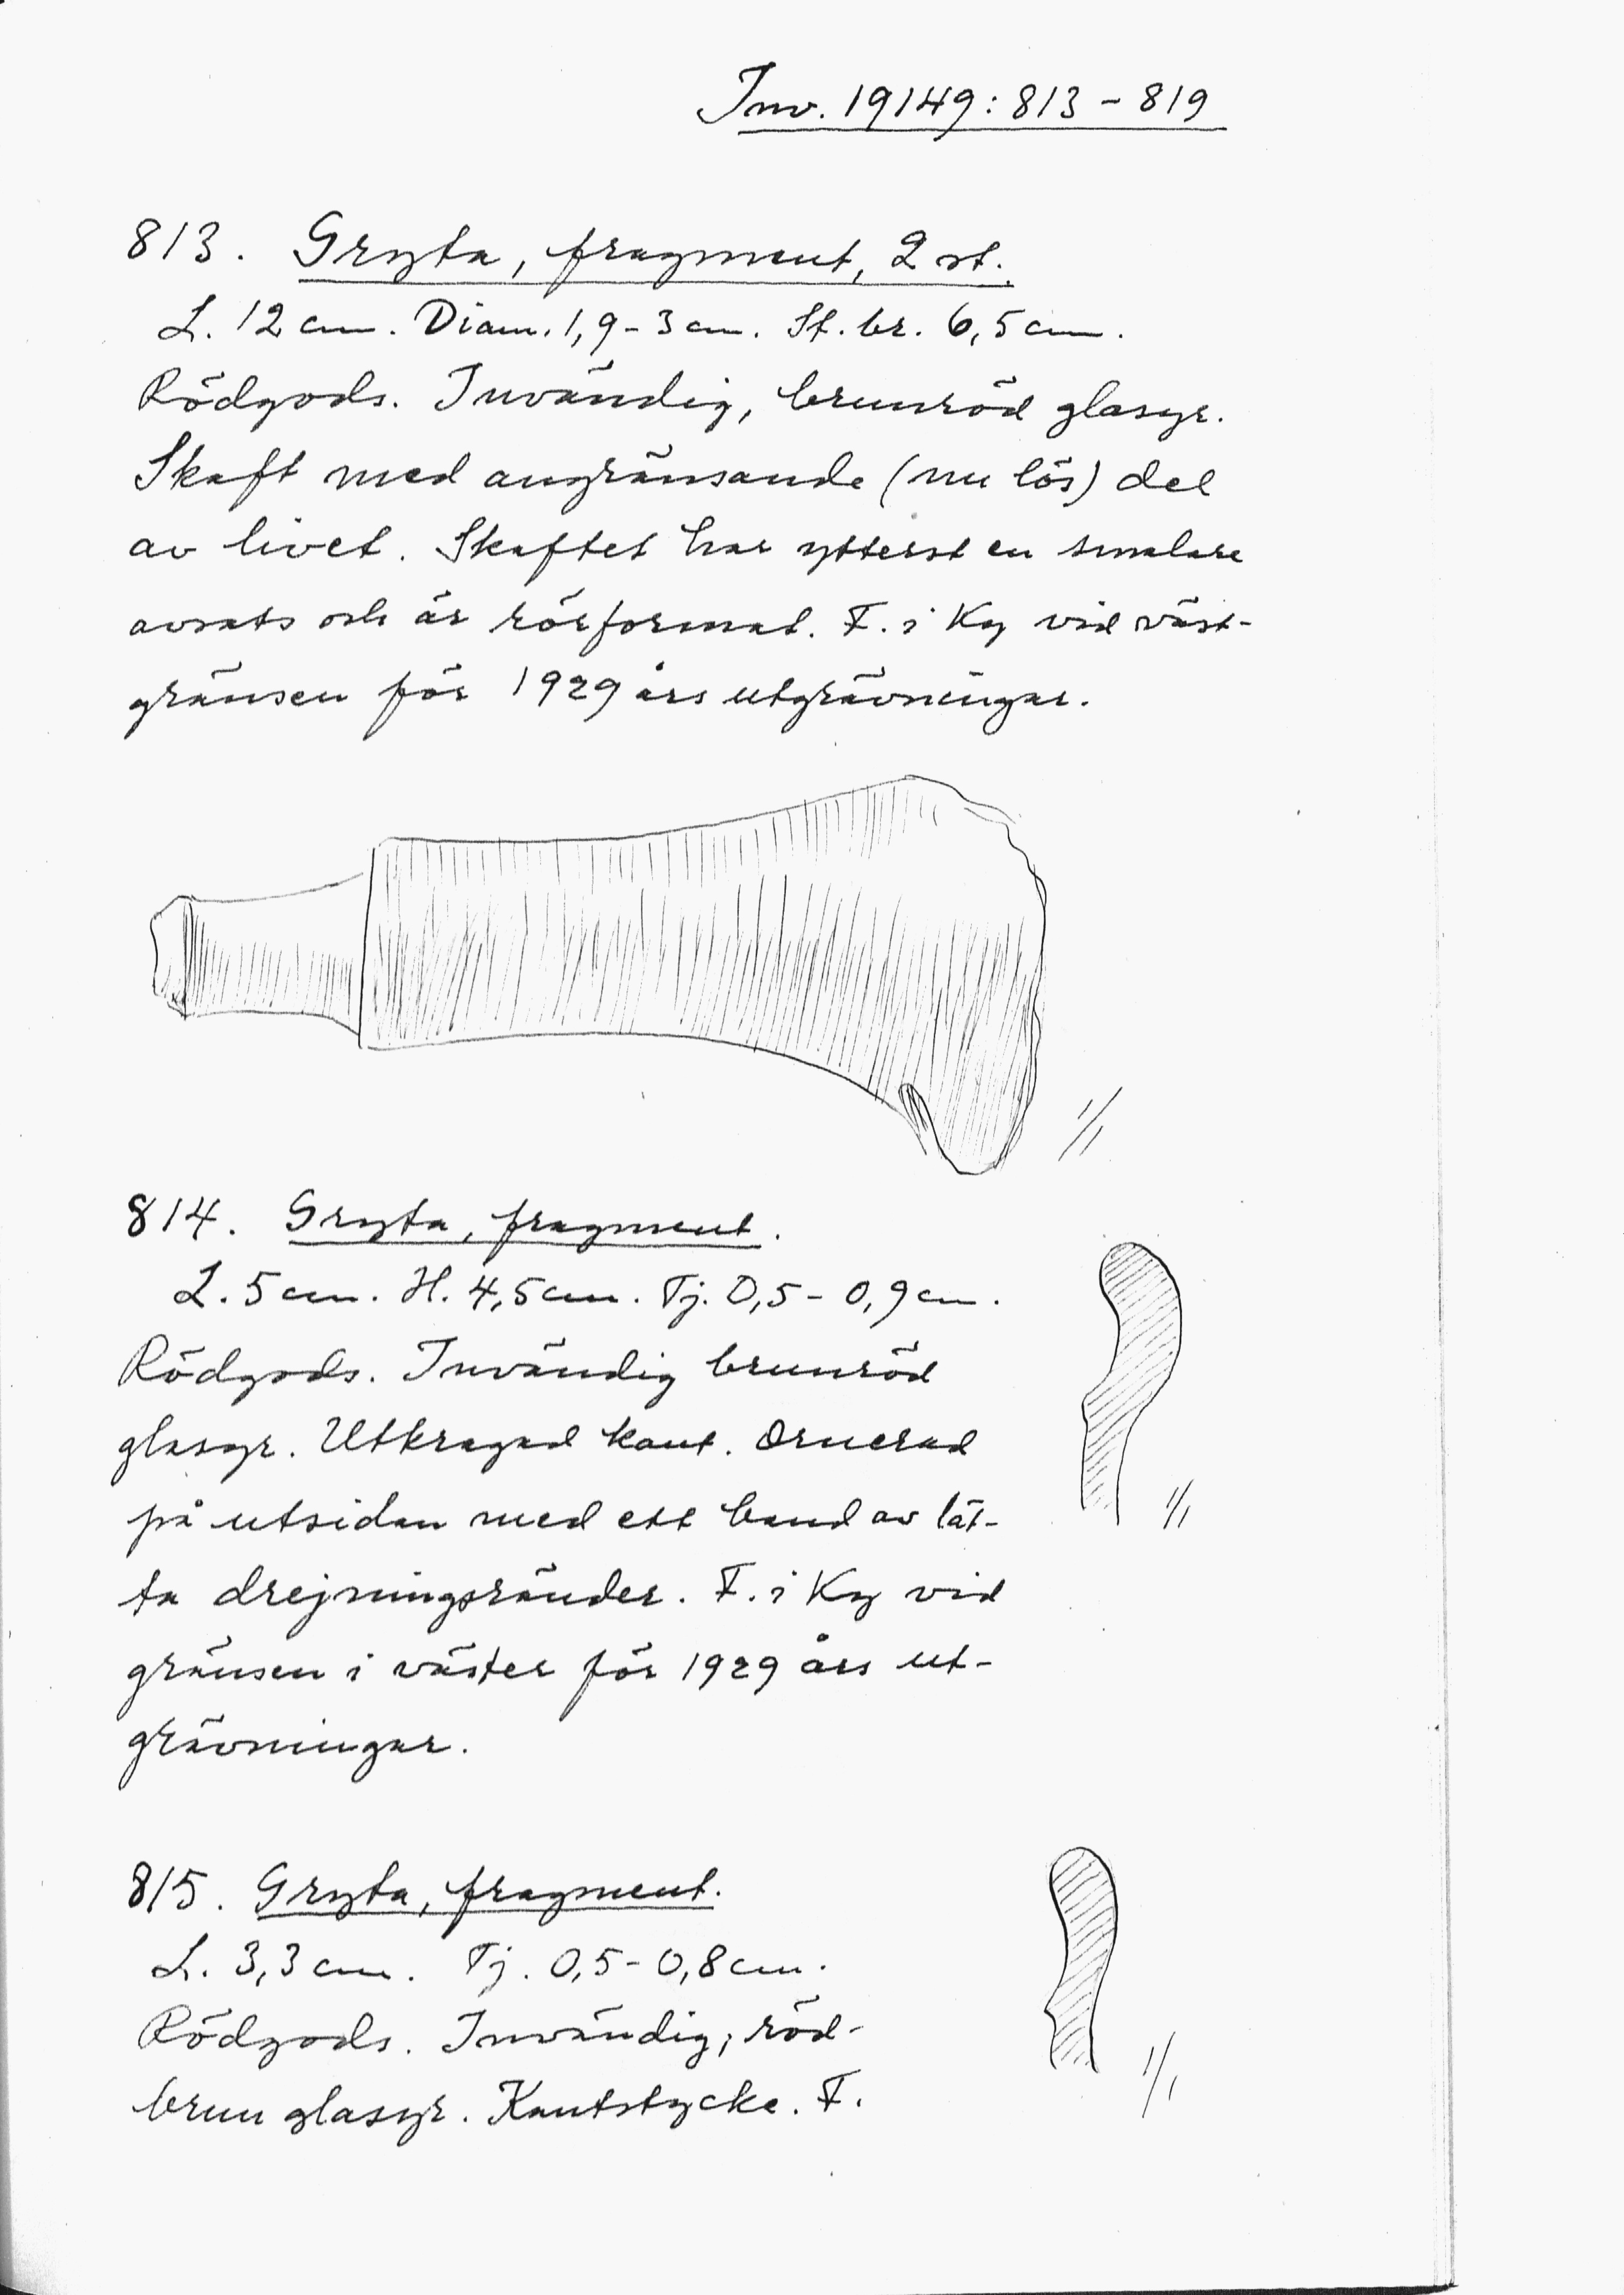 Inv. 19149:813-819
813. Gryta, fragment, 2 st.
L. 12 cm. Diam. 1,9-3 cm. St. br. 6,5 cm.
Rödgods. Invändig, brunröd glasyr.
Skaft med angränsande (nu lös) del
av livet. Skaftet har ytterst en smalare
avsats och är rörformat. F. i Kg vid väst-
gränsen för 1929 års utgrävningar.
1/1
814. Gryta, fragment.
L. 5 cm. H. 4,5 cm. Tj. 0,5-0,9 cm.
Rödgods. Invändig brunröd
glasyr. Utkragad kant. Ornerad
på utsidan med ett band av lät-
ta drejningsränder. F. i Kg vid
gränsen i väster för 1929 års ut-
grävningar.
1/1
815. Gryta, fragment.
L. 3,3 cm. Tj. 0,5-0,8 cm.
Rödgods. Invändig, röd-
brun glasyr. Kantstycke. F.
1/1